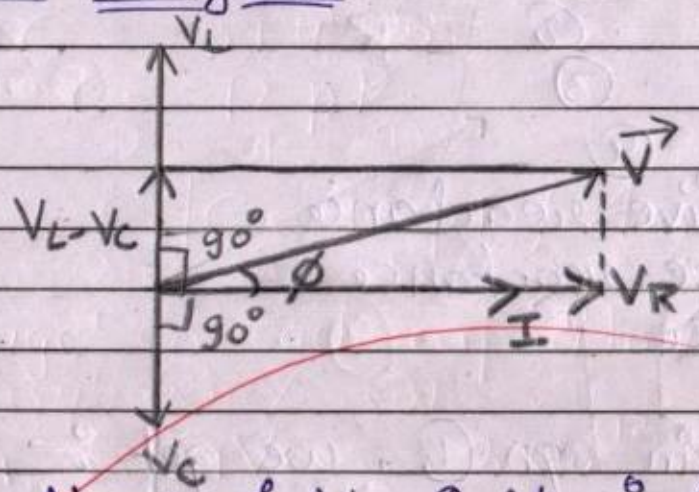 V_L
V⃗
V_L-V_C
90°
ϕ
V_R
90°
I
V_C